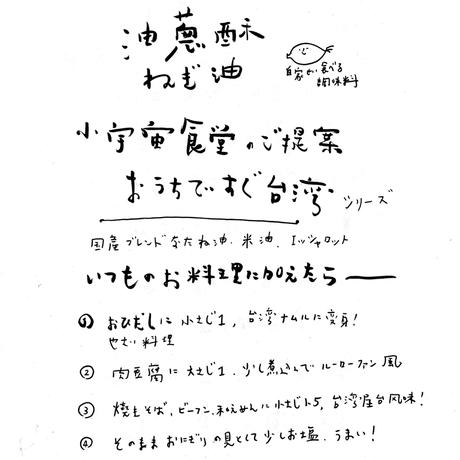 油蔥酥
ねぎ油
自家せい食べる
調味料
小宇宙食堂のご提案
おうちですぐ台湾シリーズ
国産ブレンドなたね油、米油、エシャロット
いつものお料理に加えたら
① おひたしに小さじ1、台湾ナムルに変身!
やさい料理
② 肉豆腐に大さじ1、少し煮込んでルーローファン風
③ 焼きそば、ビーフン、和えめんに小さじ1.5、台湾屋台風味!
④ そのままおにぎりの具として少しお塩、うまい!